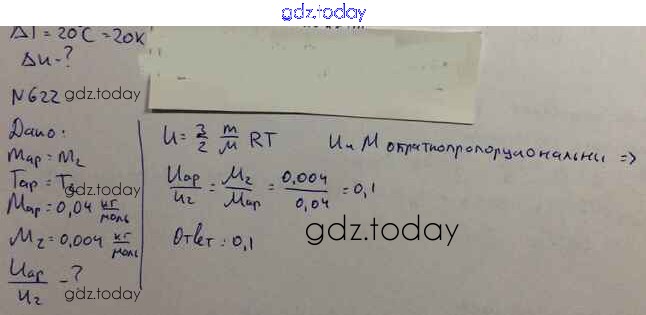 gdz.today
ΔT = 20°C = 20K
Δu - ?
N622 gdz.today
Дано:
Mар = Mг
Tар = Tг
Mар = 0,04 кг/моль
Mг = 0,004 кг/моль
Uар/Uг - ?
gdz.today
gdz.today
gdz.today
U = 3/2 m/M RT
U и M обратнопропорциональны =>
Uар/Uг = Mг/Mар = 0,004/0,04 = 0,1
Ответ: 0,1
gdz.today